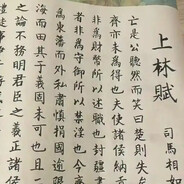 上林賦
司馬相如
亡是公聽然而笑曰楚則失
齊亦未爲得也夫使諸侯納
非爲財幣所以述職也封疆
者非爲守御所以禁淫也今
爲東藩而外私肅慎捐國逾
海而田其于義固未可也且
之論不務明君臣之義正諸